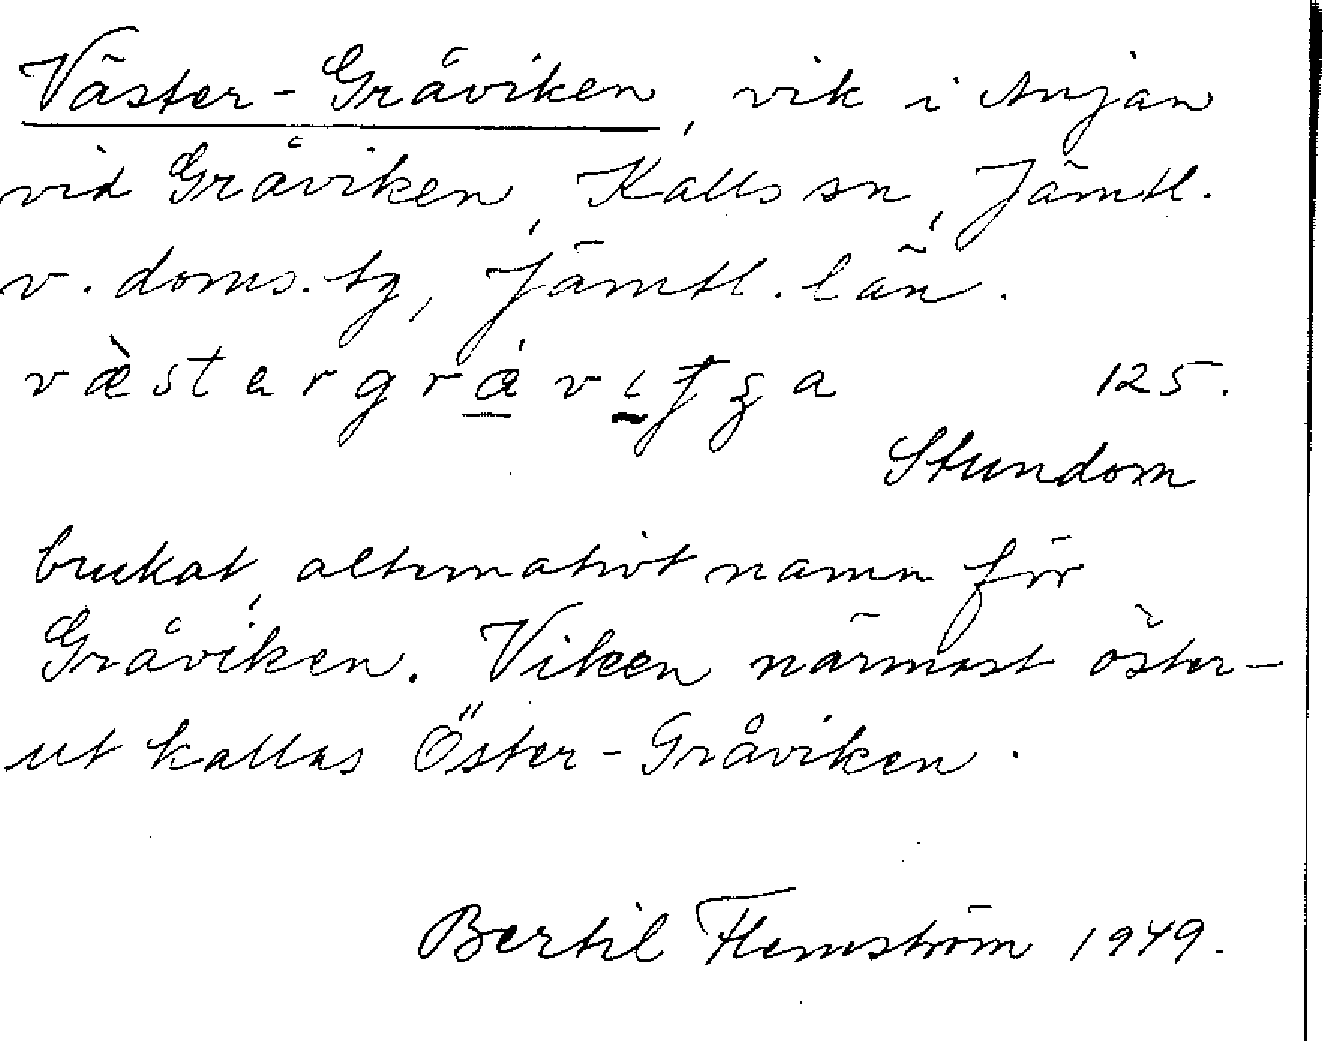 Väster-Gråviken, vik i Anjan
vid Gråviken, Kalls sn, Jämtl.
v. doms. tg, Jämtl. län.
125.
Stundom
brukat, alternativt namn för
Gråviken. Viken närmast öster-
ut kallas Öster-Gråviken.
Bertil Flemström 1949.